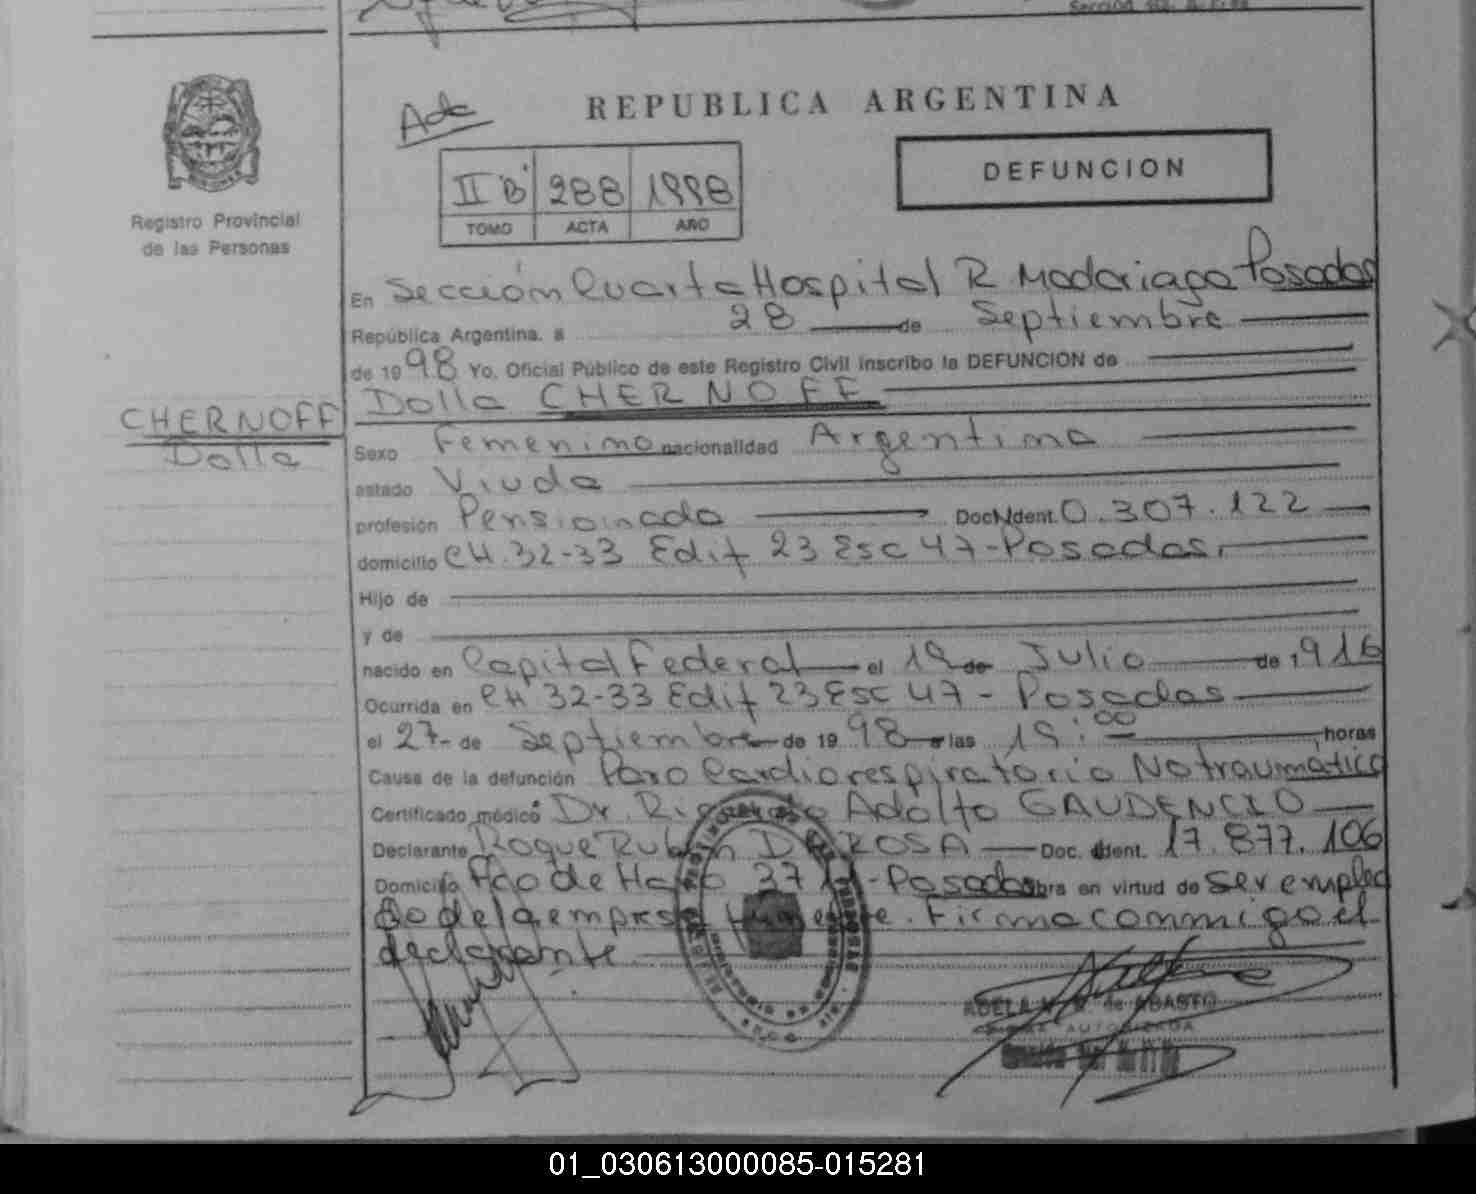 REPUBLICA ARGENTINA
DEFUNCION
II "B" 288 1998
TOMO ACTA AÑO
Registro Provincial
de las Personas
En Sección Cuarta Hospital R. Madariaga Posadas
República Argentina, a 28 de Septiembre
de 1998 Yo, Oficial Público de este Registro Civil inscribo la DEFUNCION de
Dolla CHERNOFF
CHERNOFF
Dolla
Sexo Femenino nacionalidad Argentina
estado Viuda
profesión Pensionada Doc. Ident. 0.307.122
domicilio CH. 32-33 Edif 23 Esc 47-Posadas.
Hijo de
y de
nacido en Capital Federal el 19 de Julio de 1916
Ocurrida en CH 32-33 Edif 23 Esc 47 - Posadas
el 27 de Septiembre de 1998 a las 19:00 horas
Causa de la defunción Paro Cardiorespiratorio No traumático
Certificado médico Dr. Ricardo Adolfo GAUDENCIO
Declarante Roque Rubén DA ROSA Doc. Ident. 17.877.106
Domicilio Fdo de Haro 37 - Posadas obra en virtud de ser emplea
do de la empresa fúnebre. Firma conmigo el
declarante
ADELA de ABASTO
AUTORIZADA
01_030613000085-015281